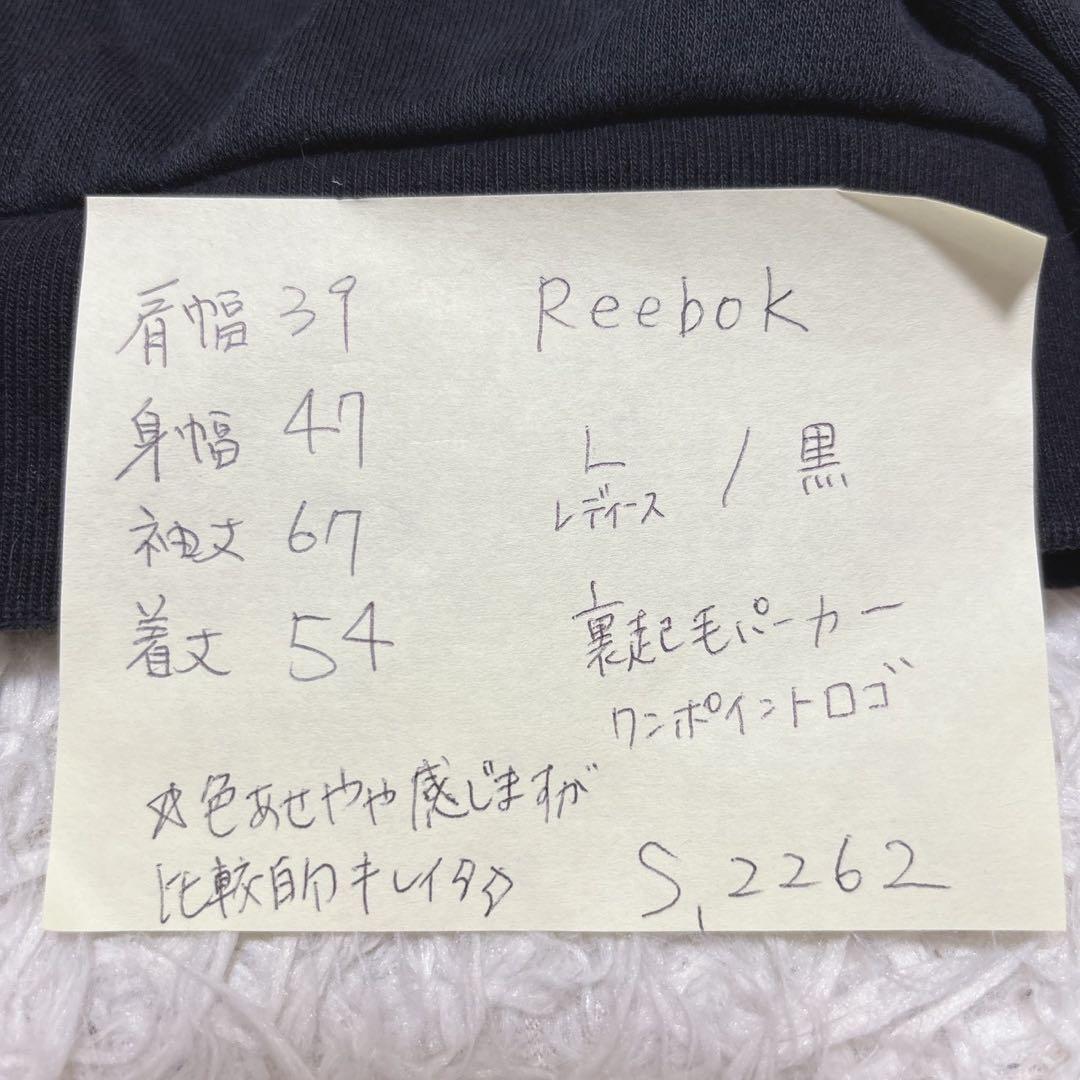 肩幅 39
身幅 47
袖丈 67
着丈 54
Reebok
L / 黒
レディース
裏起毛パーカー
ワンポイントロゴ
☆色あせやや感じますが
比較的キレイ
S,2262